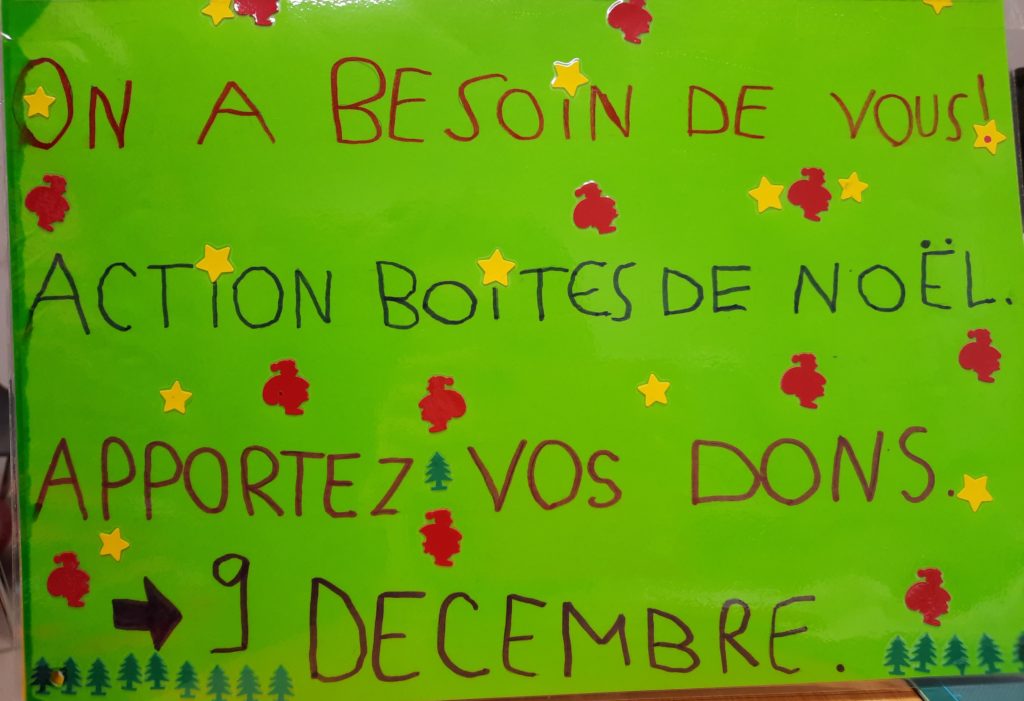 ON A BESOIN DE VOUS!
ACTION BOITES DE NOËL.
APPORTEZ VOS DONS.
➡ 9 DECEMBRE.